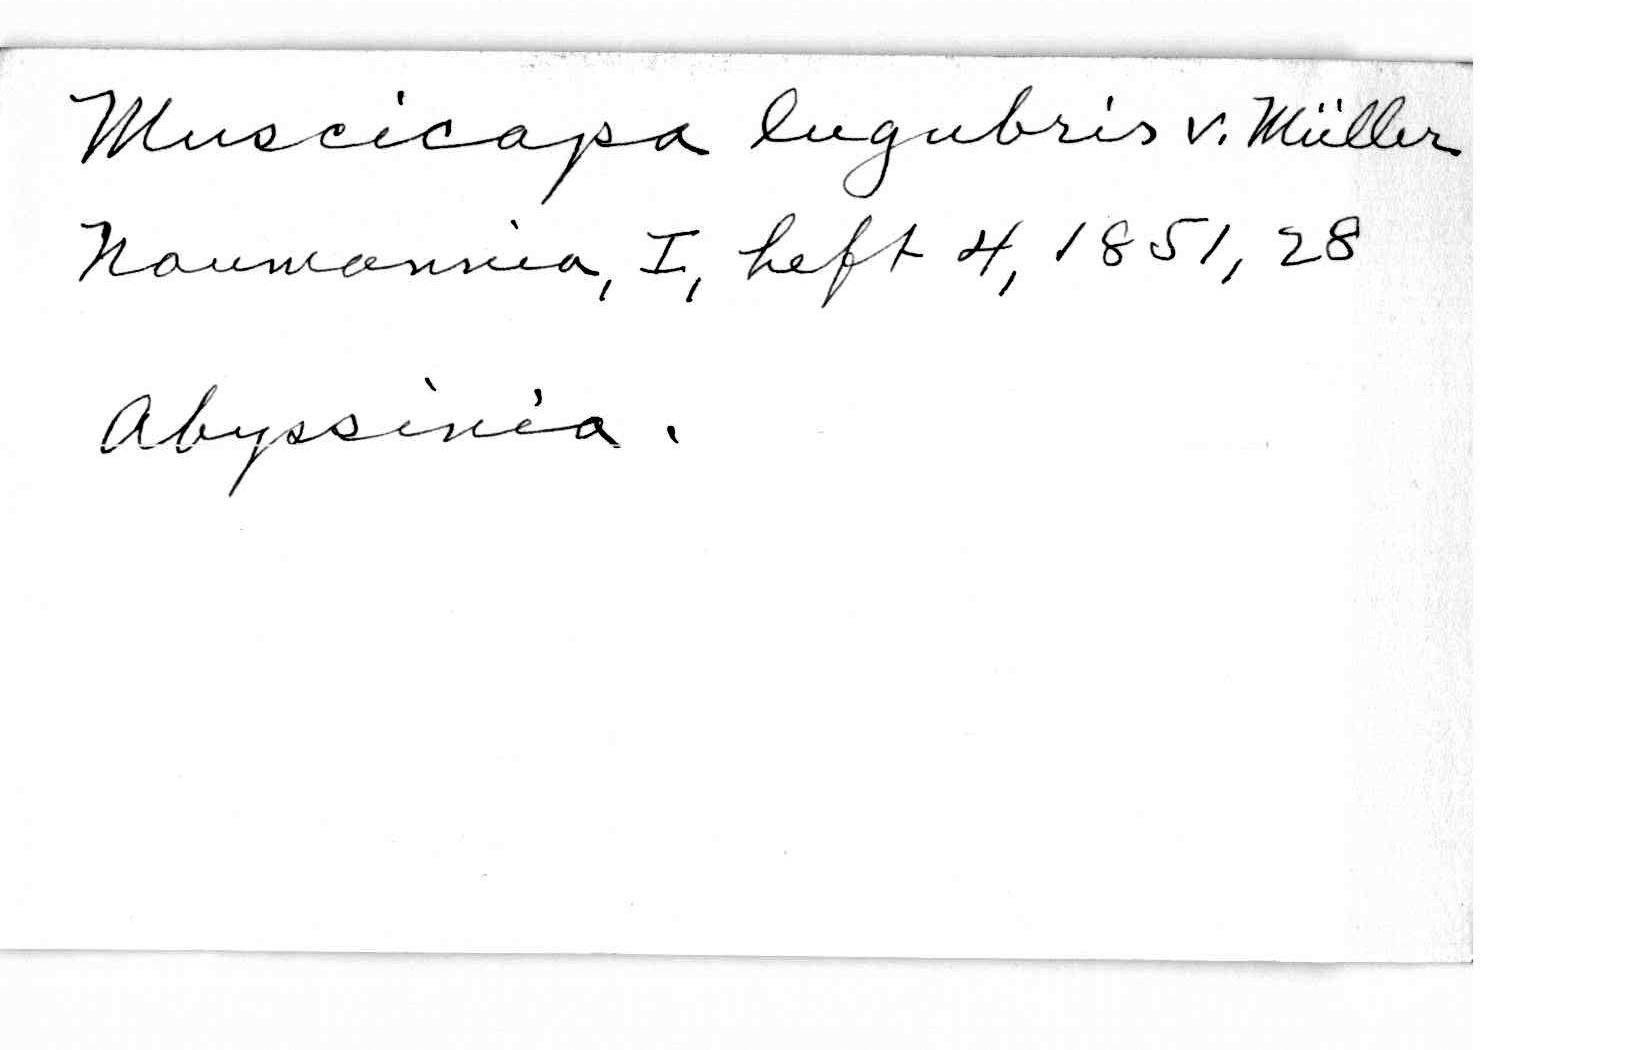 Muscicapa lugubris v. Müller
Naumannia, I, heft 4, 1851, 28
Abyssinia.